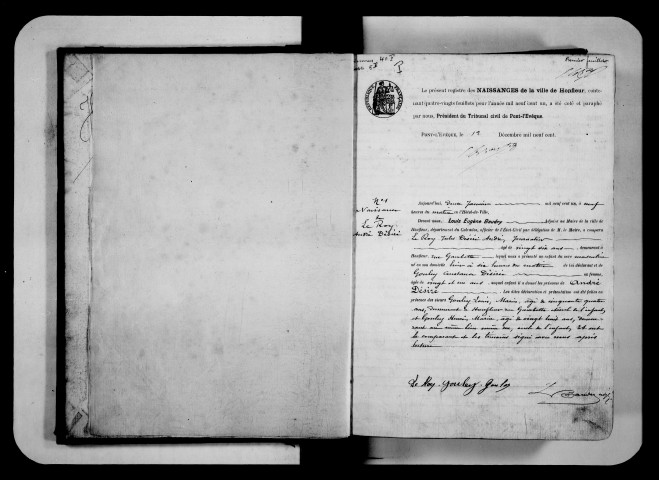 Premier feuillet
Le présent registre des NAISSANCES de la ville de Honfleur, conte-
nant quatre-vingts feuillets pour l'année mil neuf cent un, a été coté et paraphé
par nous, Président du Tribunal civil de Pont-l'Evêque.
PONT-L'EVÊQUE, le 12 Décembre mil neuf cent.
N° 1
Naissance
de
Le Roy
André Désiré
Aujourd'hui, deux Janvier mil neuf cent un, à neuf
heures du matin en l'Hôtel-de-Ville,
Devant nous, Louis Eugène Baudry Adjoint au Maire de la ville de
Honfleur, département du Calvados, officier de l'Etat-Civil par délégation de M. le Maire, a comparu
Le Roy Jules Désiré André, Journalier
âgé de vingt six ans, demeurant à
Honfleur, rue Gambette lequel nous a présenté un enfant du sexe masculin
né en son domicile hier à six heures du matin de lui déclarant et de
Gouley Constance Désirée sa femme,
âgée de vingt et un ans, auquel enfant il a donné les prénoms de André
Désiré Les dites déclaration et présentation ont été faites en
présence des sieurs Gouley Louis, Marie, âgé de cinquante quatre
ans, demeurant à Honfleur rue Gambette aïeul de l'enfant,
et Gouley Henri, Marie, âgé de vingt trois ans, demeu-
rant au même lieu même rue, oncle de l'enfant, Et ont
le comparant et les témoins signé avec nous après
lecture
Le Roy Gouley Gouley
L. Baudry adj.